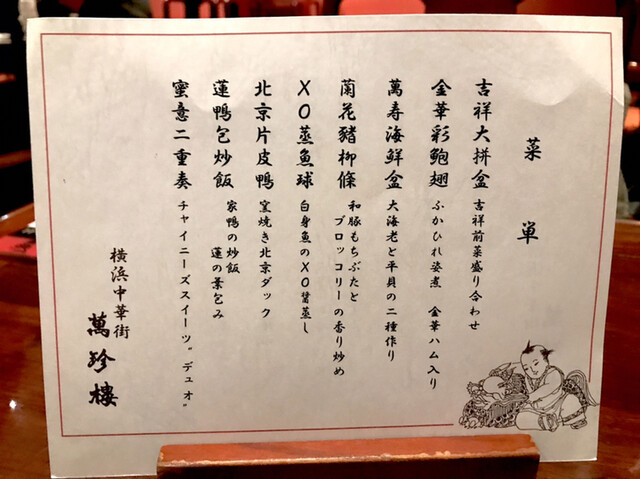 菜単
吉祥大拼盆
吉祥前菜盛り合わせ
金華彩鮑翅
ふかひれ姿煮 金華ハム入り
萬寿海鮮盆
大海老と平貝の二種作り
蘭花豬柳條
和豚もちぶたと
ブロッコリーの香り炒め
XO蒸魚球
白身魚のXO醤蒸し
北京片皮鴨
窯焼き北京ダック
蓮鴨包炒飯
家鴨の炒飯
蓮の葉包み
蜜意二重奏
チャイニーズスイーツ"デュオ"
横浜中華街
萬珍樓